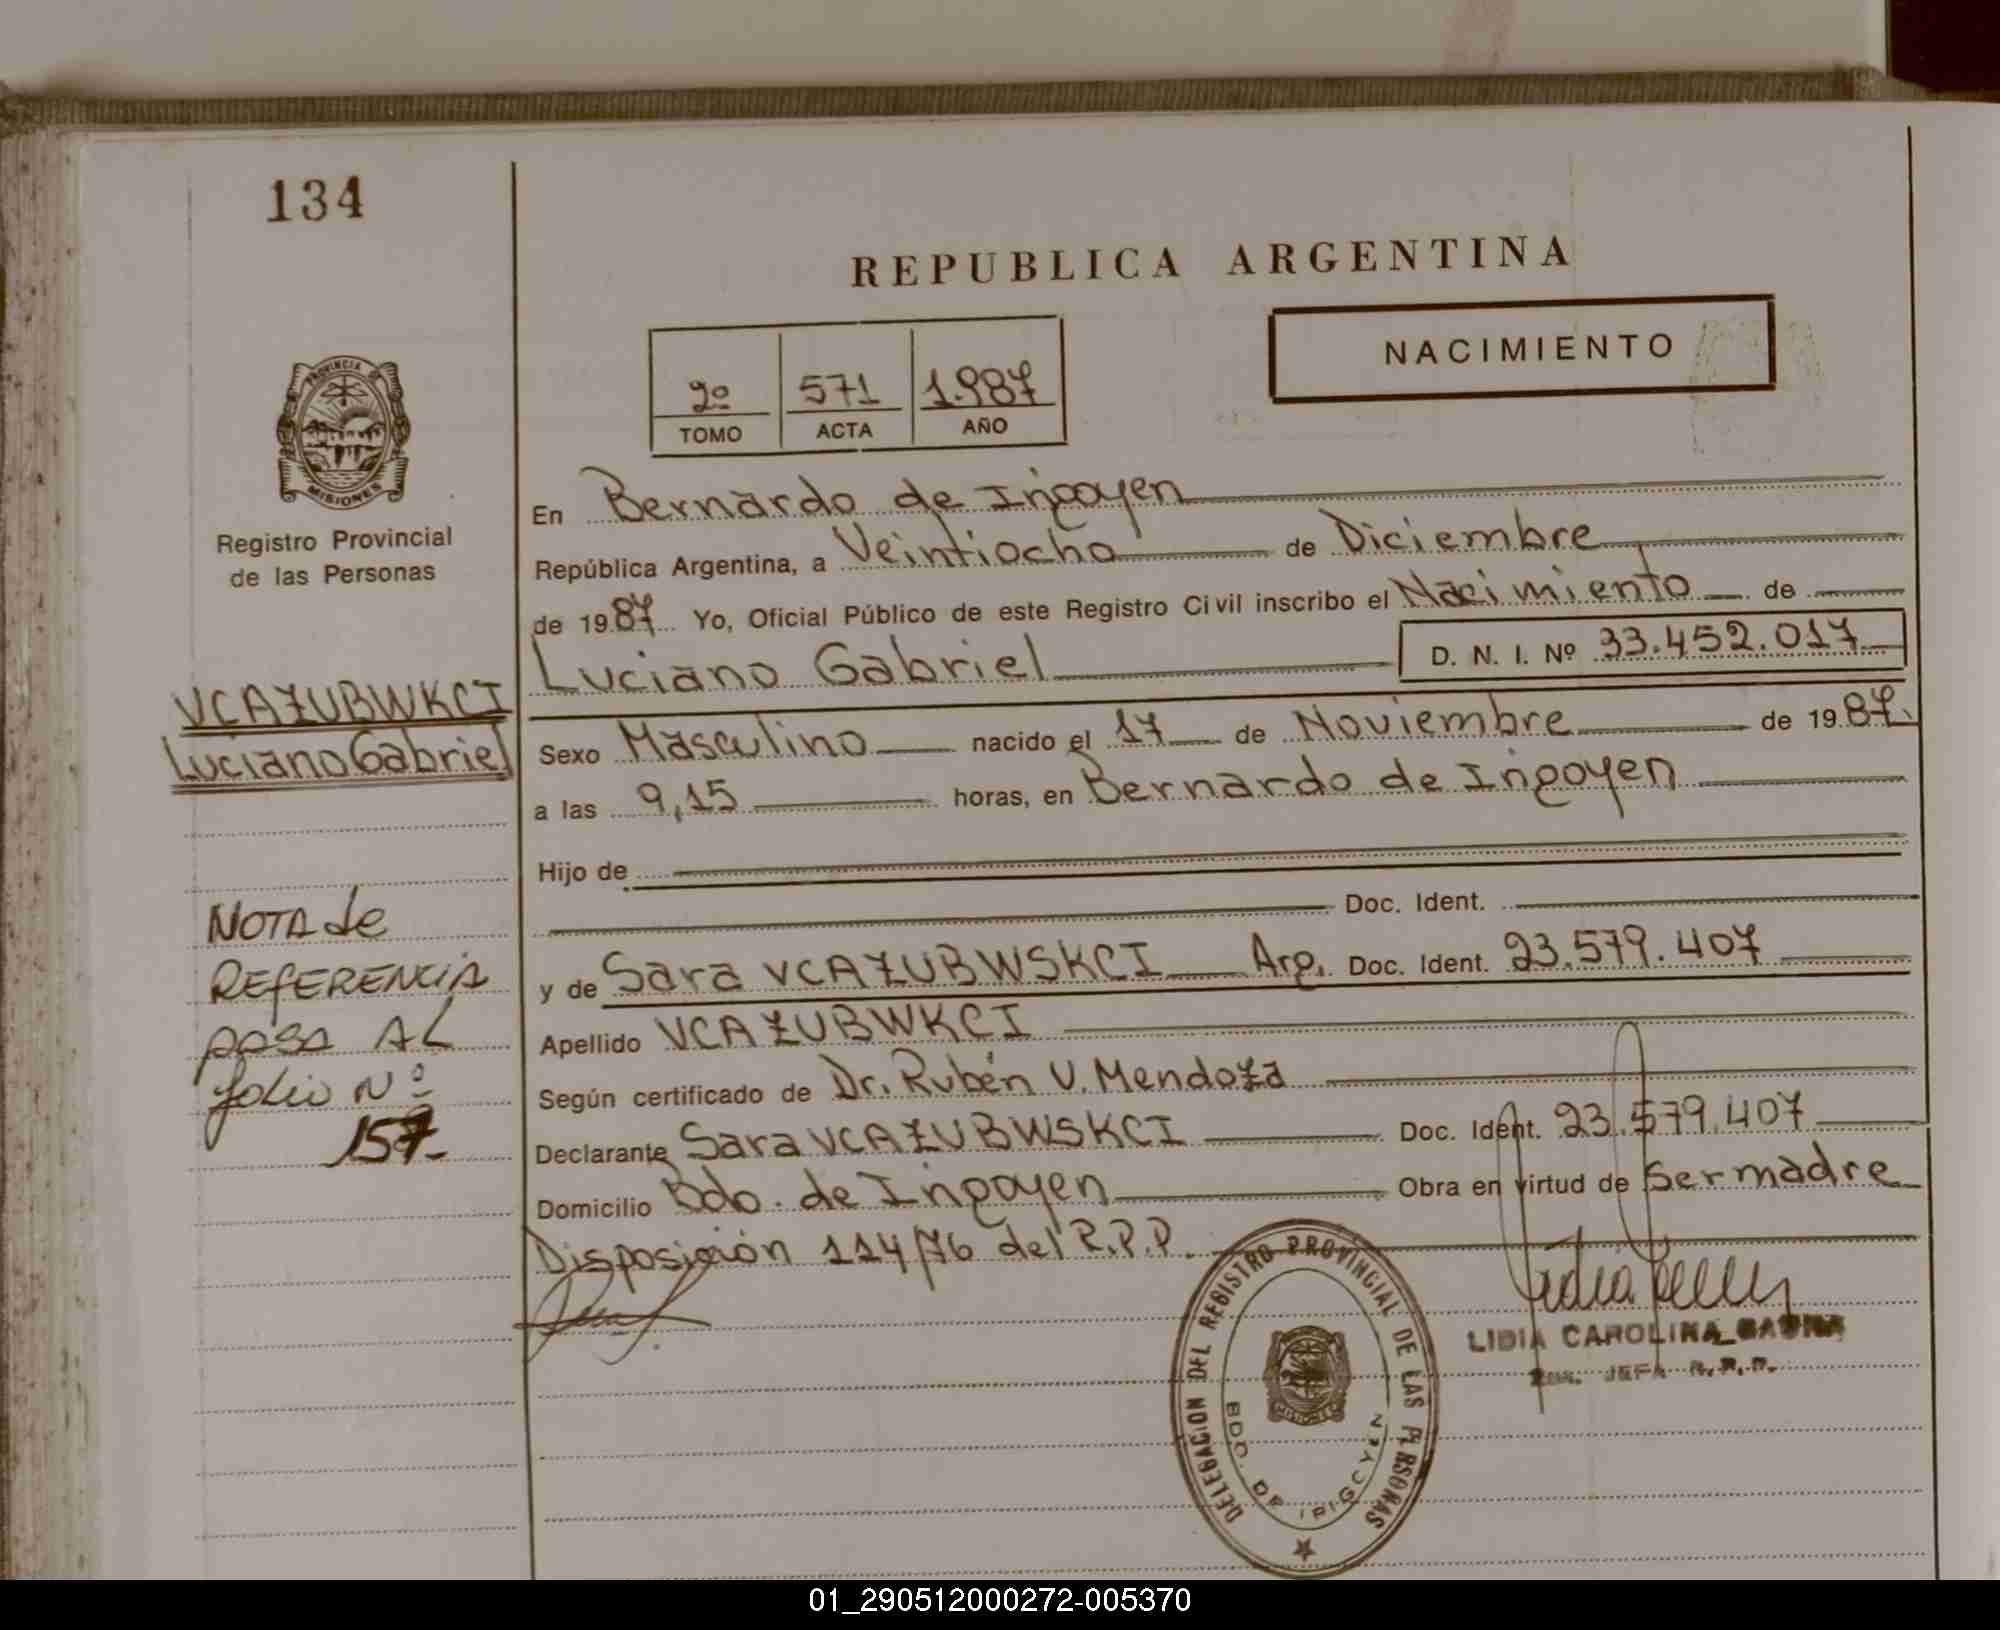 134
REPUBLICA ARGENTINA
NACIMIENTO
2º 571 1.987
TOMO ACTA AÑO
PROVINCIA DE
MISIONES
Registro Provincial
de las Personas
VCAZUBWKCI
Luciano Gabriel
NOTA de
REFERENCIA
pasa AL
folio Nº
157-
En Bernardo de Irigoyen
República Argentina, a Veintiocho de Diciembre
de 1987 Yo, Oficial Público de este Registro Civil inscribo el Nacimiento de
Luciano Gabriel D. N. I. Nº 33.452.017
Sexo Masculino nacido el 17 de Noviembre de 1987.
a las 9,15 horas, en Bernardo de Irigoyen
Hijo de
Doc. Ident.
y de Sara VCAZUBWSKCI Arg. Doc. Ident. 23.579.407
Apellido VCAZUBWKCI
Según certificado de Dr. Rubén V. Mendoza
Declarante Sara VCAZUBWSKCI Doc. Ident. 23.579.407
Domicilio Bdo. de Irigoyen Obra en virtud de Ser madre
Disposición 114/76 del R.P.P.
DELEGACION DEL REGISTRO PROVINCIAL DE LAS PERSONAS
BDO. DE IRIGOYEN
MISIONES
LIDIA CAROLINA GAUNA
JEFA R.P.P.
01_290512000272-005370